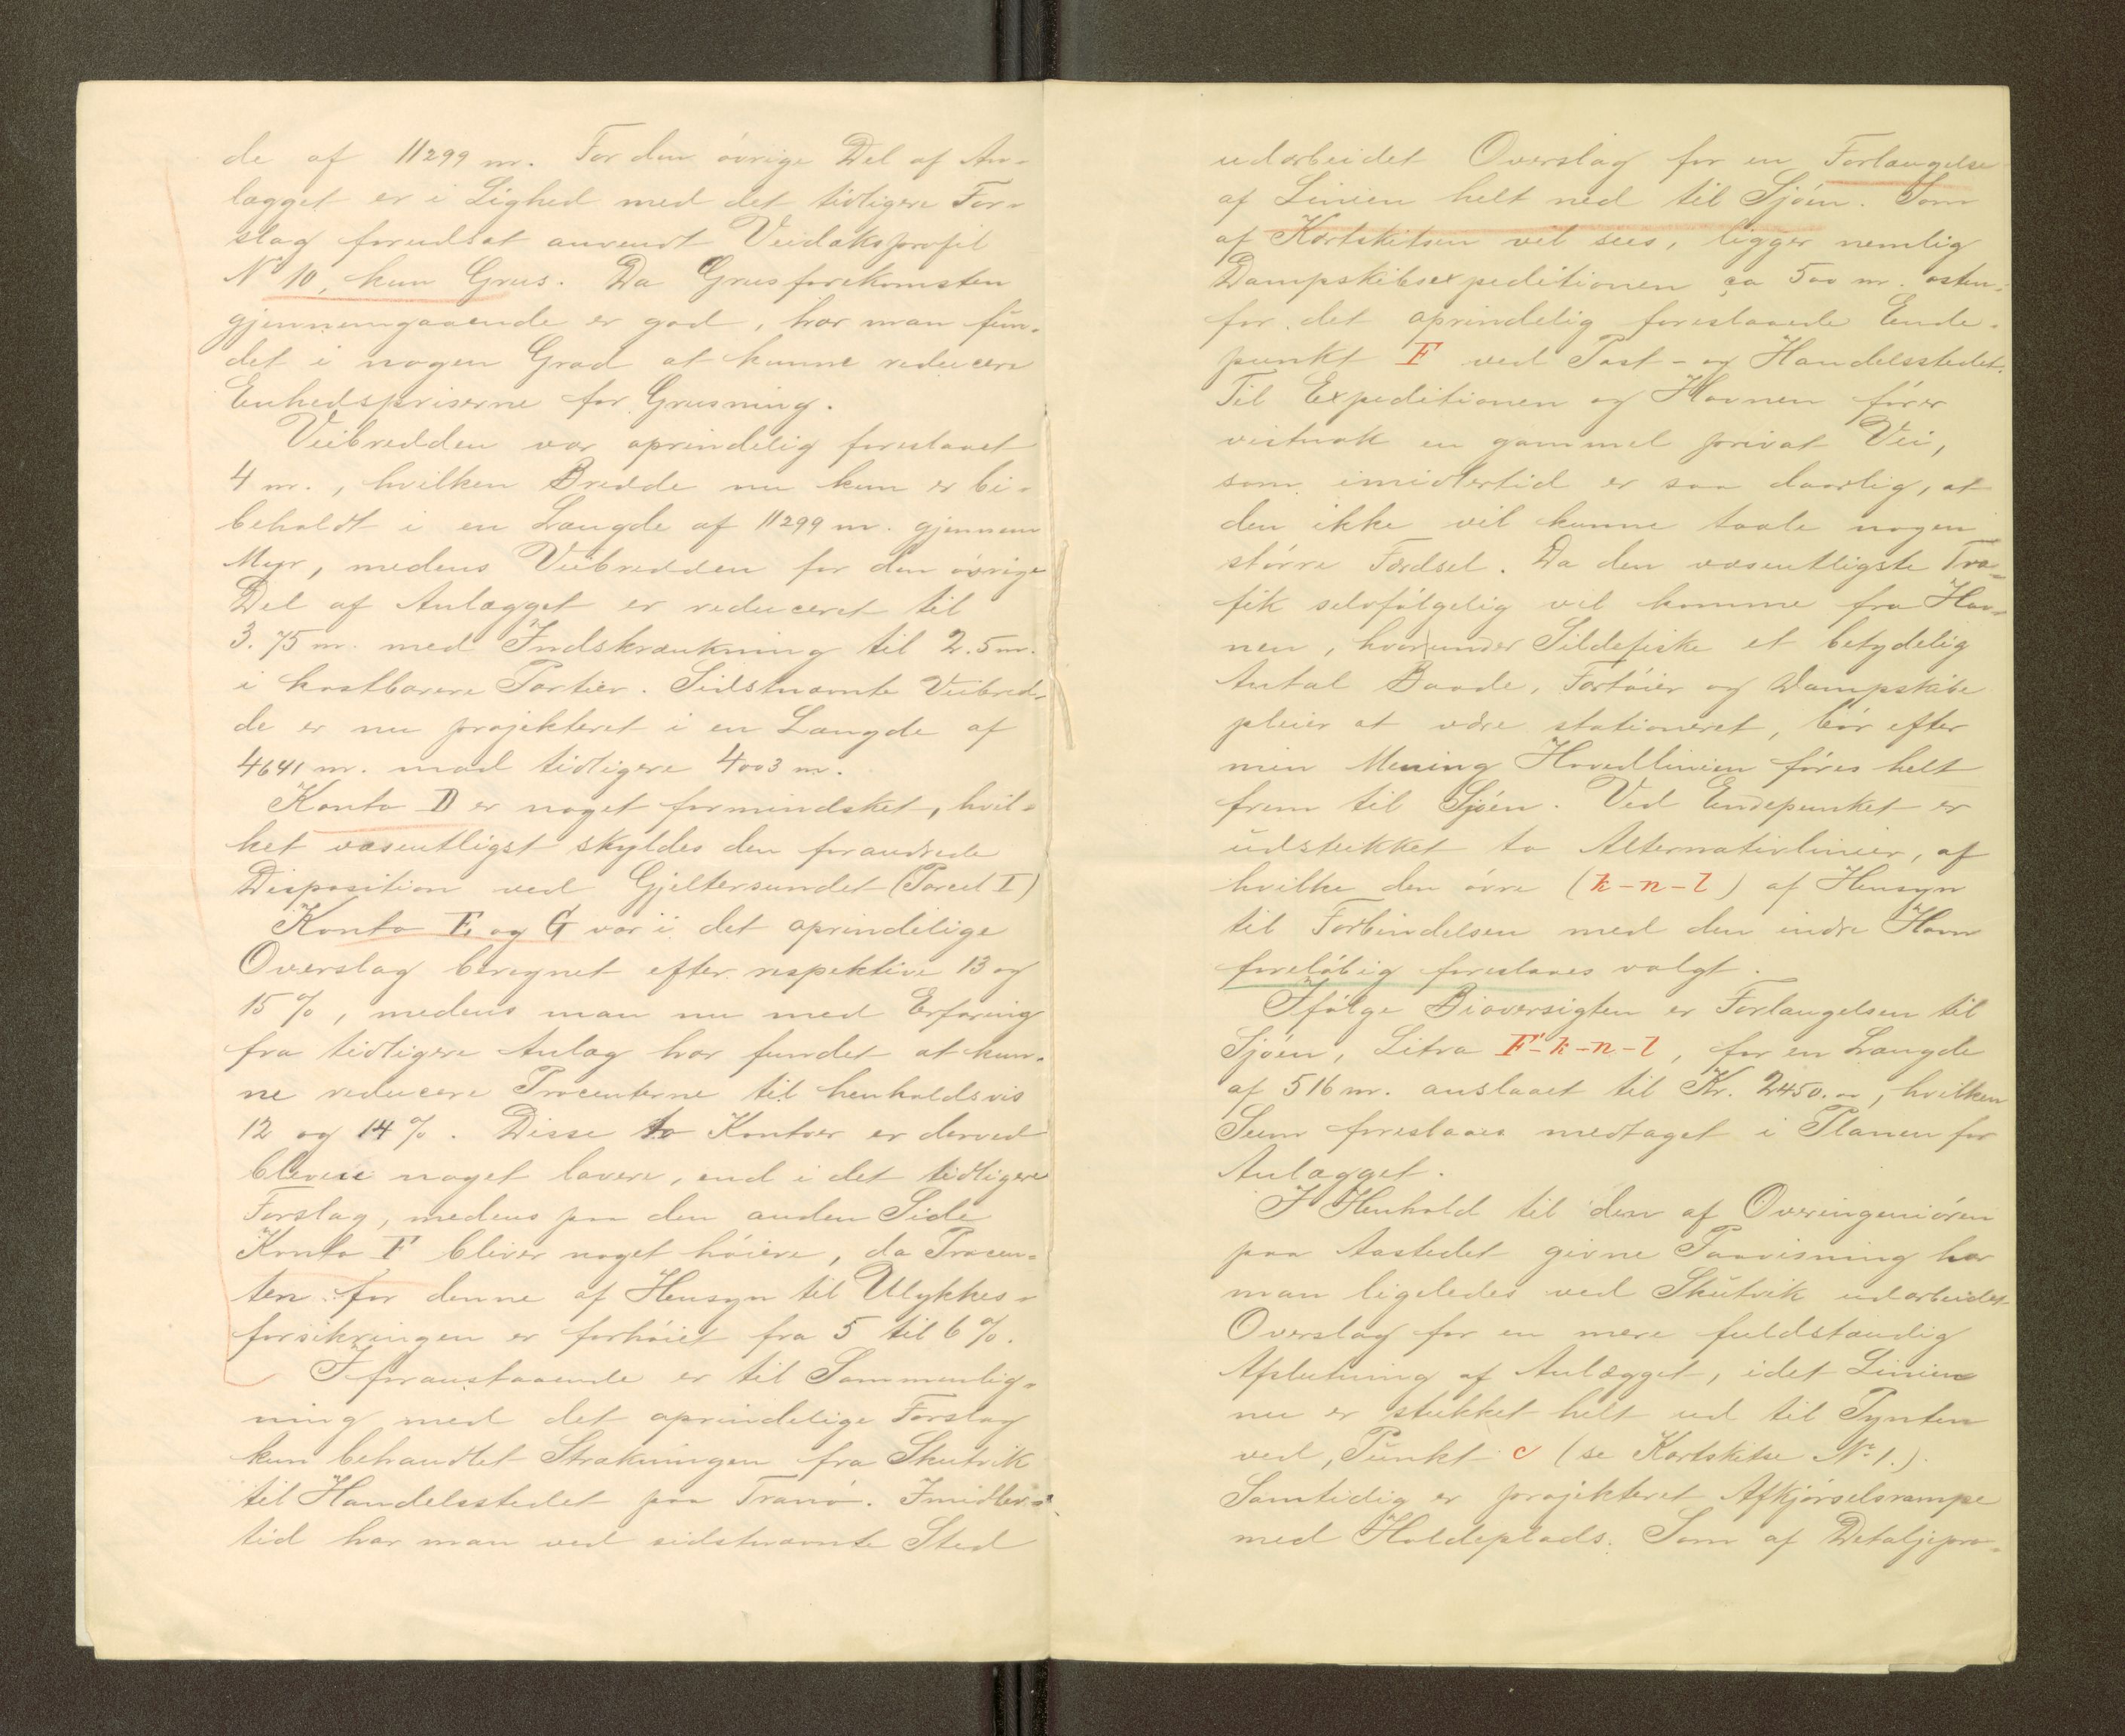 de af 11299 m. For den øvrige Del af An-
lægget er i Lighed med det tidligere For-
slag forudsat anvendt Veidæksprofil
No 10, kun Grus. Da Grusforekomsten
gjennemgaaende er god, har man fun-
det i nogen Grad at kunne reducere
Enhedspriserne for Grusning.
Veibredden var oprindelig foreslaaet
4 m., hvilken Bredde nu kun er bi-
beholdt i en Længde af 11299 m. gjennem
Myr, medens Veibredden for den øvrige
Del af Anlægget er reduceret til
3.75 m. med Indskrænkning til 2.5 m.
i kostbarere Partier. Sidstnævnte Veibred-
de er nu projekteret i en Længde af
4641 m. mod tidligere 4003 m.
Konto D er noget formindsket, hvil-
ket væsentligst skyldes den forandrede
Disposition ved Gjeltersundet (Parcel I)
Konto E og G var i det oprindelige
Overslag beregnet efter respektive 13 og
15 %, medens man nu med Erfaring
fra tidligere Anlæg har fundet at kun-
ne reducere Procenterne til henholdsvis
12 og 14 %. Disse to Kontoer er derved
blevne noget lavere, end i det tidligere
Forslag, medens paa den anden Side
Konto F bliver noget høiere, da Procen-
ten for denne af Hensyn til Ulykkes-
forsikringen er forhøiet fra 5 til 6 %.
I foranstaaende er til Sammenlig-
ning med det oprindelige Forslag
kun behandlet Strækningen fra Skutvik
til Handelsstedet paa Tranø. Imidler-
tid har man ved sidstnævnte Sted
udarbeidet Overslag for en Forlængelse
af Linien helt ned til Sjøen. Som
af Kartskitsen vil sees, ligger nemlig
Dampskibsexpeditionen ca 500 m. østen-
for det oprindelig foreslaaede Ende-
punkt F ved Post- og Handelsstedet.
Til Expeditionen og Havnen fører
vistnok en gammel privat Vei,
som imidlertid er saa daarlig, at
den ikke vil kunne taale nogen
større Færdsel. Da den væsentligste Tra-
fik selvfølgelig vil komme fra Hav-
nen, hvor under Sildefiske et betydelig
Antal Baade, Fartøier og Dampskibe
pleier at være stationeret, bør efter
min Mening Hovedlinien føres helt
frem til Sjøen. Ved Endepunktet er
udstukket to Alternativlinier, af
hvilke den øvre (k-n-l) af Hensyn
til Forbindelsen med den indre Havn
foreløbig foreslaaes valgt.
Ifølge Bioversigten er Forlængelsen til
Sjøen, Litra F-k-n-l, for en Længde
af 516 m. anslaaet til Kr. 2450.00, hvilken
Sum foreslaaes medtaget i Planen for
Anlægget.
I Henhold til den af Overingeniøren
paa Aastedet givne Paavisning har
man ligeledes ved Skutvik udarbeidet
Overslag for en mere fuldstændig
Afslutning af Anlægget, idet Linien
nu er stukket helt ud til Pynten
ved Punkt c (se Kartskitse No 1.).
Samtidig er projekteret Afkjørselsrampe
med Holdeplads. Som af Detaljepro-